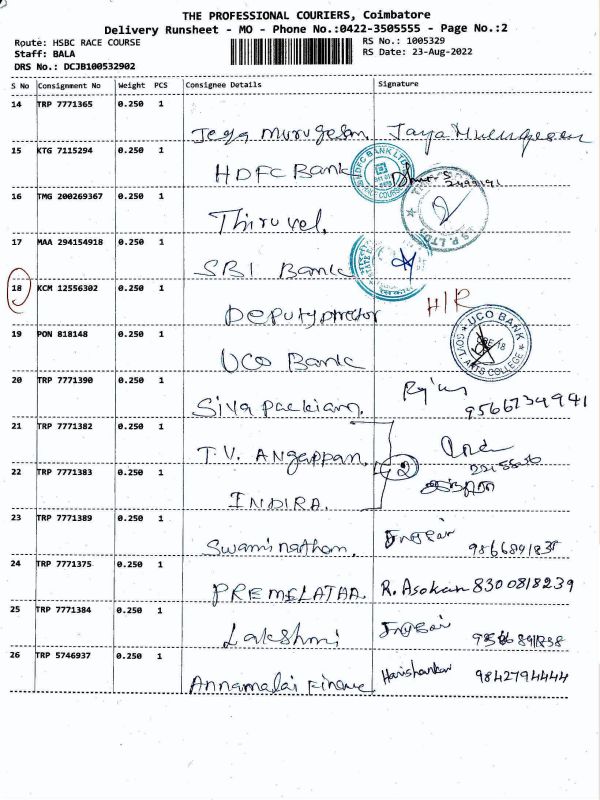 THE PROFESSIONAL COURIERS, Coimbatore
Delivery Runsheet - MO - Phone No.:0422-3505555 - Page No.:2
Route: HSBC RACE COURSE
RS No.: 1005329
Staff: BALA
RS Date: 23-Aug-2022
DRS No.: DCJB100532902
S No Consignment No Weight PCS Consignee Details Signature
14 TRP 7771365 0.250 1
Jeya Murugesan. Jaya Murugesan
15 KTG 7115294 0.250 1
HDFC Bank
HDFC BANK LTD
RACE COURSE
16 TMG 200269367 0.250 1
Thiruvel.
17 MAA 294154918 0.250 1
SBI Bank
18 KCM 12556302 0.250 1
Deputydirector H/R
19 PON 818148 0.250 1
UCO Bank
UCO BANK
ARTS COLLEGE
20 TRP 7771390 0.250 1
Sivapackiam. 9566734941
21 TRP 7771382 0.250 1
T.V. Angappan.
2
22 TRP 7771383 0.250 1
INDIRA.
23 TRP 7771389 0.250 1
Swaminathan.
24 TRP 7771375 0.250 1
PREMELATAA. R. Asokan 8300818239
25 TRP 7771384 0.250 1
Lakshmi
26 TRP 5746937 0.250 1
Annamalai Finance Harishankar 9842794444